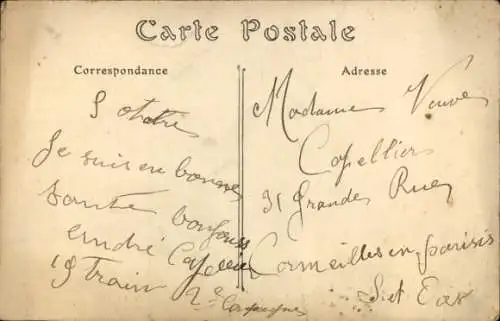 Carte Postale
Correspondance
Adresse
5 octobre
Je suis en bonne
santé bonjour
André Capellier
19 Train 2e Compagnie
Madame Veuve
Capellier
31 Grande Rue
Cormeilles en parisis
S et Oise